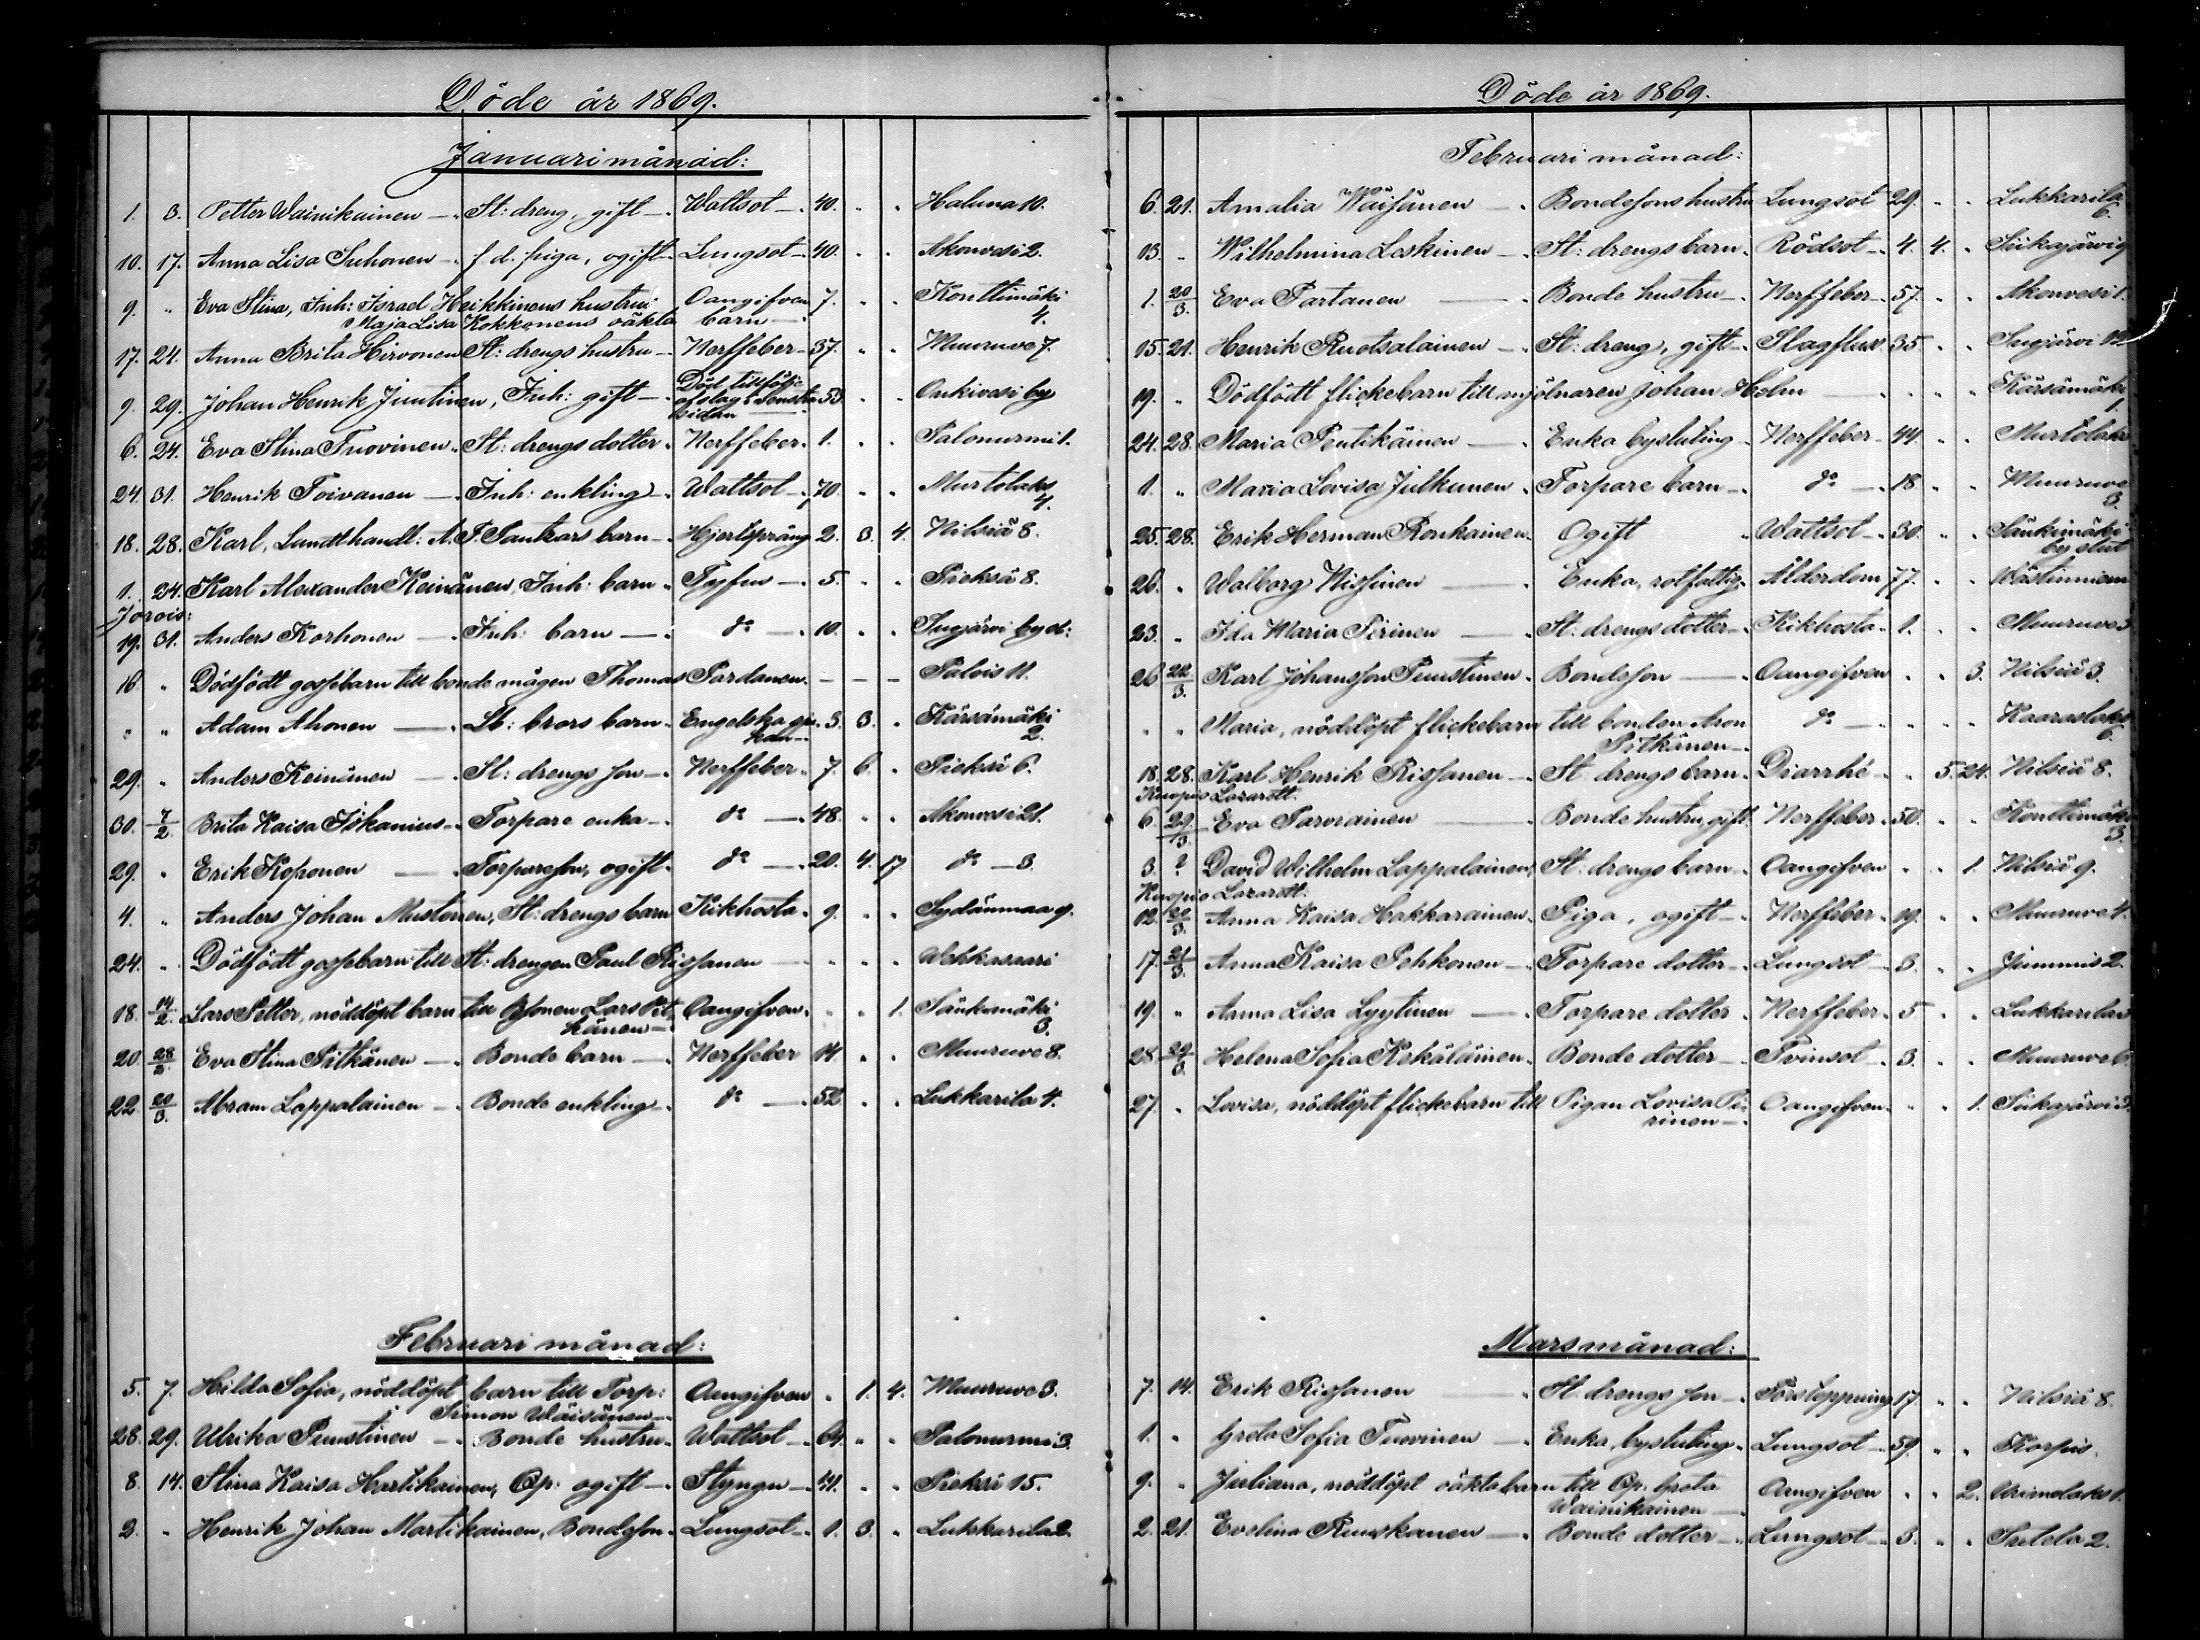 Döde år 1869.
Januari månad:
1. 3. Petter Wainikainen — St: dreng, gift — Wattsot — 40. " " Haluna 10.
10. 17. Anna Lisa Suhonen — f. d. piga, ogift — Lungsot — 40. " " Akonvesi 2.
9. " Eva Stina, Inh: Israel Heikkinens hustru: Oangifven 7. " " Konttimäki
Maja Lisa Kokkonens oäkta barn — 4.
17. 24. Anna Brita Hirvonen St: drengs hustru — Nerffeber — 37. " " Muuruve 7.
9. 29. Johan Henrik Juutinen, Inh: gift — Död till följe af slag i venstra sidan — 53 " " Onkivesi by
6. 24. Eva Stina Tuovinen. St: drengs dotter. Nerffeber. 1. " " Palonurmi 1.
24. 31. Henrik Toivanen — Inh: enkling — Wattsot — 70. " " Murtolaks
4.
18. 28. Karl, Landthandl: A. F. barn — Hjertsprång 2. 3. 4. Nilsiä 8.
1. 24. Karl Alexander Keinänen, Inh: barn — Tyfus — 5. " " Pieksä 8.
Jorois:
19. 31. Anders Korhonen — Inh: barn — do — 10. " " Syvjärvi by
16. " Dödfödt gossebarn till bonde mågen Thomas Pardanen. — — — Palois 11.
" " Adam Ahonen — St: brors barn — Engelska sju- 3. 3. " Kärsämäki
kan — 2.
29. " Anders Keinänen — St: drengs son — Nerffeber. 7. 6. " Pieksä 6.
30. 7/2. Brita Kaisa Iskanius — Torpare enka — do — 48. " " Akonvesi 21.
29. " Erik Koponen — Torpareson, ogift. do — 20. 4. 17 do — 3.
4. " Anders Johan Mustonen, St: drengs barn Kikhosta. 9. " " Sydänmaa 9.
24. " Dödfödt gossebarn till St: drengen Paul Rissanen — " " " Wehkasaari
18. 14/2. Lars Petter, nöddöpt barn till Lars Pit- Oangifven. " " 1. Sänkimäki
känen — 3.
20. 28/2. Eva Stina Pitkänen — Bonde barn — Nerffeber 14. " " Muuruve 8.
22. 20/3. Abram Lappalainen — Bonde enkling — do — 52 " " Lukkarila 4.
Februari månad:
5. 7. Hilda Sofia, nöddöpt barn till Torp: Oangifven " 1. 4. Muuruve 3.
Simon Wäisänen —
28. 29. Ulrika Puustinen — Bonde hustru — Wattsot — 64. " " Palonurmi 3.
8. 14. Stina Kaisa Hartikainen, Qp: ogift — Styngn — 41. " " Pieksä 15.
2. " Henrik Johan Martikainen, Bondeson — Lungsot — 1. 3. " Lukkarila 2.
Döde år 1869.
Februari månad:
6. 21. Amalia Wäisänen — Bondesons hustru Lungsot 29. " " Lukkarila
6.
13. " Wilhelmina Leskinen — St: drengs barn. Rödsot — 4. 4. " Siikajärvi 9
1. 20/3. Eva Partanen — Bonde hustru — Nerffeber — 57. " " Akonvesi 1.
15. 21. Henrik Ruotsalainen — St: dreng, gift — Slagfluss 35 " " Syvjärvi
19. " Dödfödt flickebarn till mjölnaren Johan Holm — " " " Kärsämäki
1.
24. 28. Maria Pentikäinen — Enka bysluting — Nerffeber — 44. " " Murtolaks
1. " Maria Lovisa Julkunen. Torpare barn — do — 18 " " Muuruve
3.
25. 28. Erik Herman Ronkainen. Ogift " Wattsot — 30. " " Sänkimäki
by slut
26. " Walborg Nissinen — Enka, rotfattig. Ålderdom 77. " " Wästinniemi
23. " Ida Maria Pirinen — St: drengs dotter — Kikhosta. 1. " " Muuruve 3
26 22/3. Karl Johansson Puustinen. Bondeson — Oangifven " " 3. Nilsiä 3.
" " Maria, nöddöpt flickebarn till bonden Aron do — " " " Kaaraslaks
Pitkänen — 6.
18. 28. Karl Henrik Rissanen — St: drengs barn. Diarrhé — " 5. 24. Nilsiä 8.
Kuopio Lazarett.
6. 29/3. Eva Parviainen — Bonde hustru, gift. Nerffeber. 50. " " Konttimäki
3.
3. ? David Wilhelm Lappalainen, St: drengs barn. Oangifven " " 1. Nilsiä 9.
Kuopio Lazarett.
12. 22/3. Anna Kaisa Hakkarainen. Piga, ogift — Nerffeber. 19. " " Muuruve 4.
17. 21/3. Anna Kaisa Pehkonen — Torpare dotter — Lungsot — 3. " " Jummis 2.
19. " Anna Lisa Lyytinen — Torpare dotter Nerffeber. 5 " " Lukkarila 3
28. 29/3. Helena Sofia Kekäläinen. Bonde dotter — Tvinsot — 3. " " Muuruve 6
27. " Lovisa, nöddöpt flickebarn till Pigan Lovisa Pi- Oangifven. " " 1. Siikajärvi 3.
rinen —
Mars månad:
7. 14. Erik Rissanen — St drengs son — Förstoppning 17. " " Nilsiä 8.
1. " Greta Sofia Tuovinen — Enka, bysluting. Lungsot — 59. " " Korpis.
9. " Juliana, nöddöpt oäkta barn till Qp. Greta Oangifven " " 2.
Wainikainen —
2. 21. Evelina Ruuskanen — Bonde dotter — Lungsot — 5. " " Sutela 2.